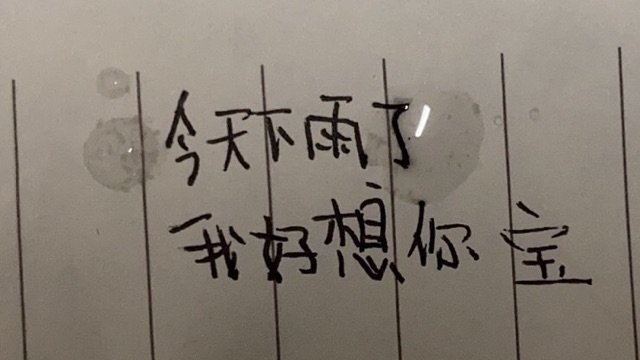 今天下雨了
我好想你宝